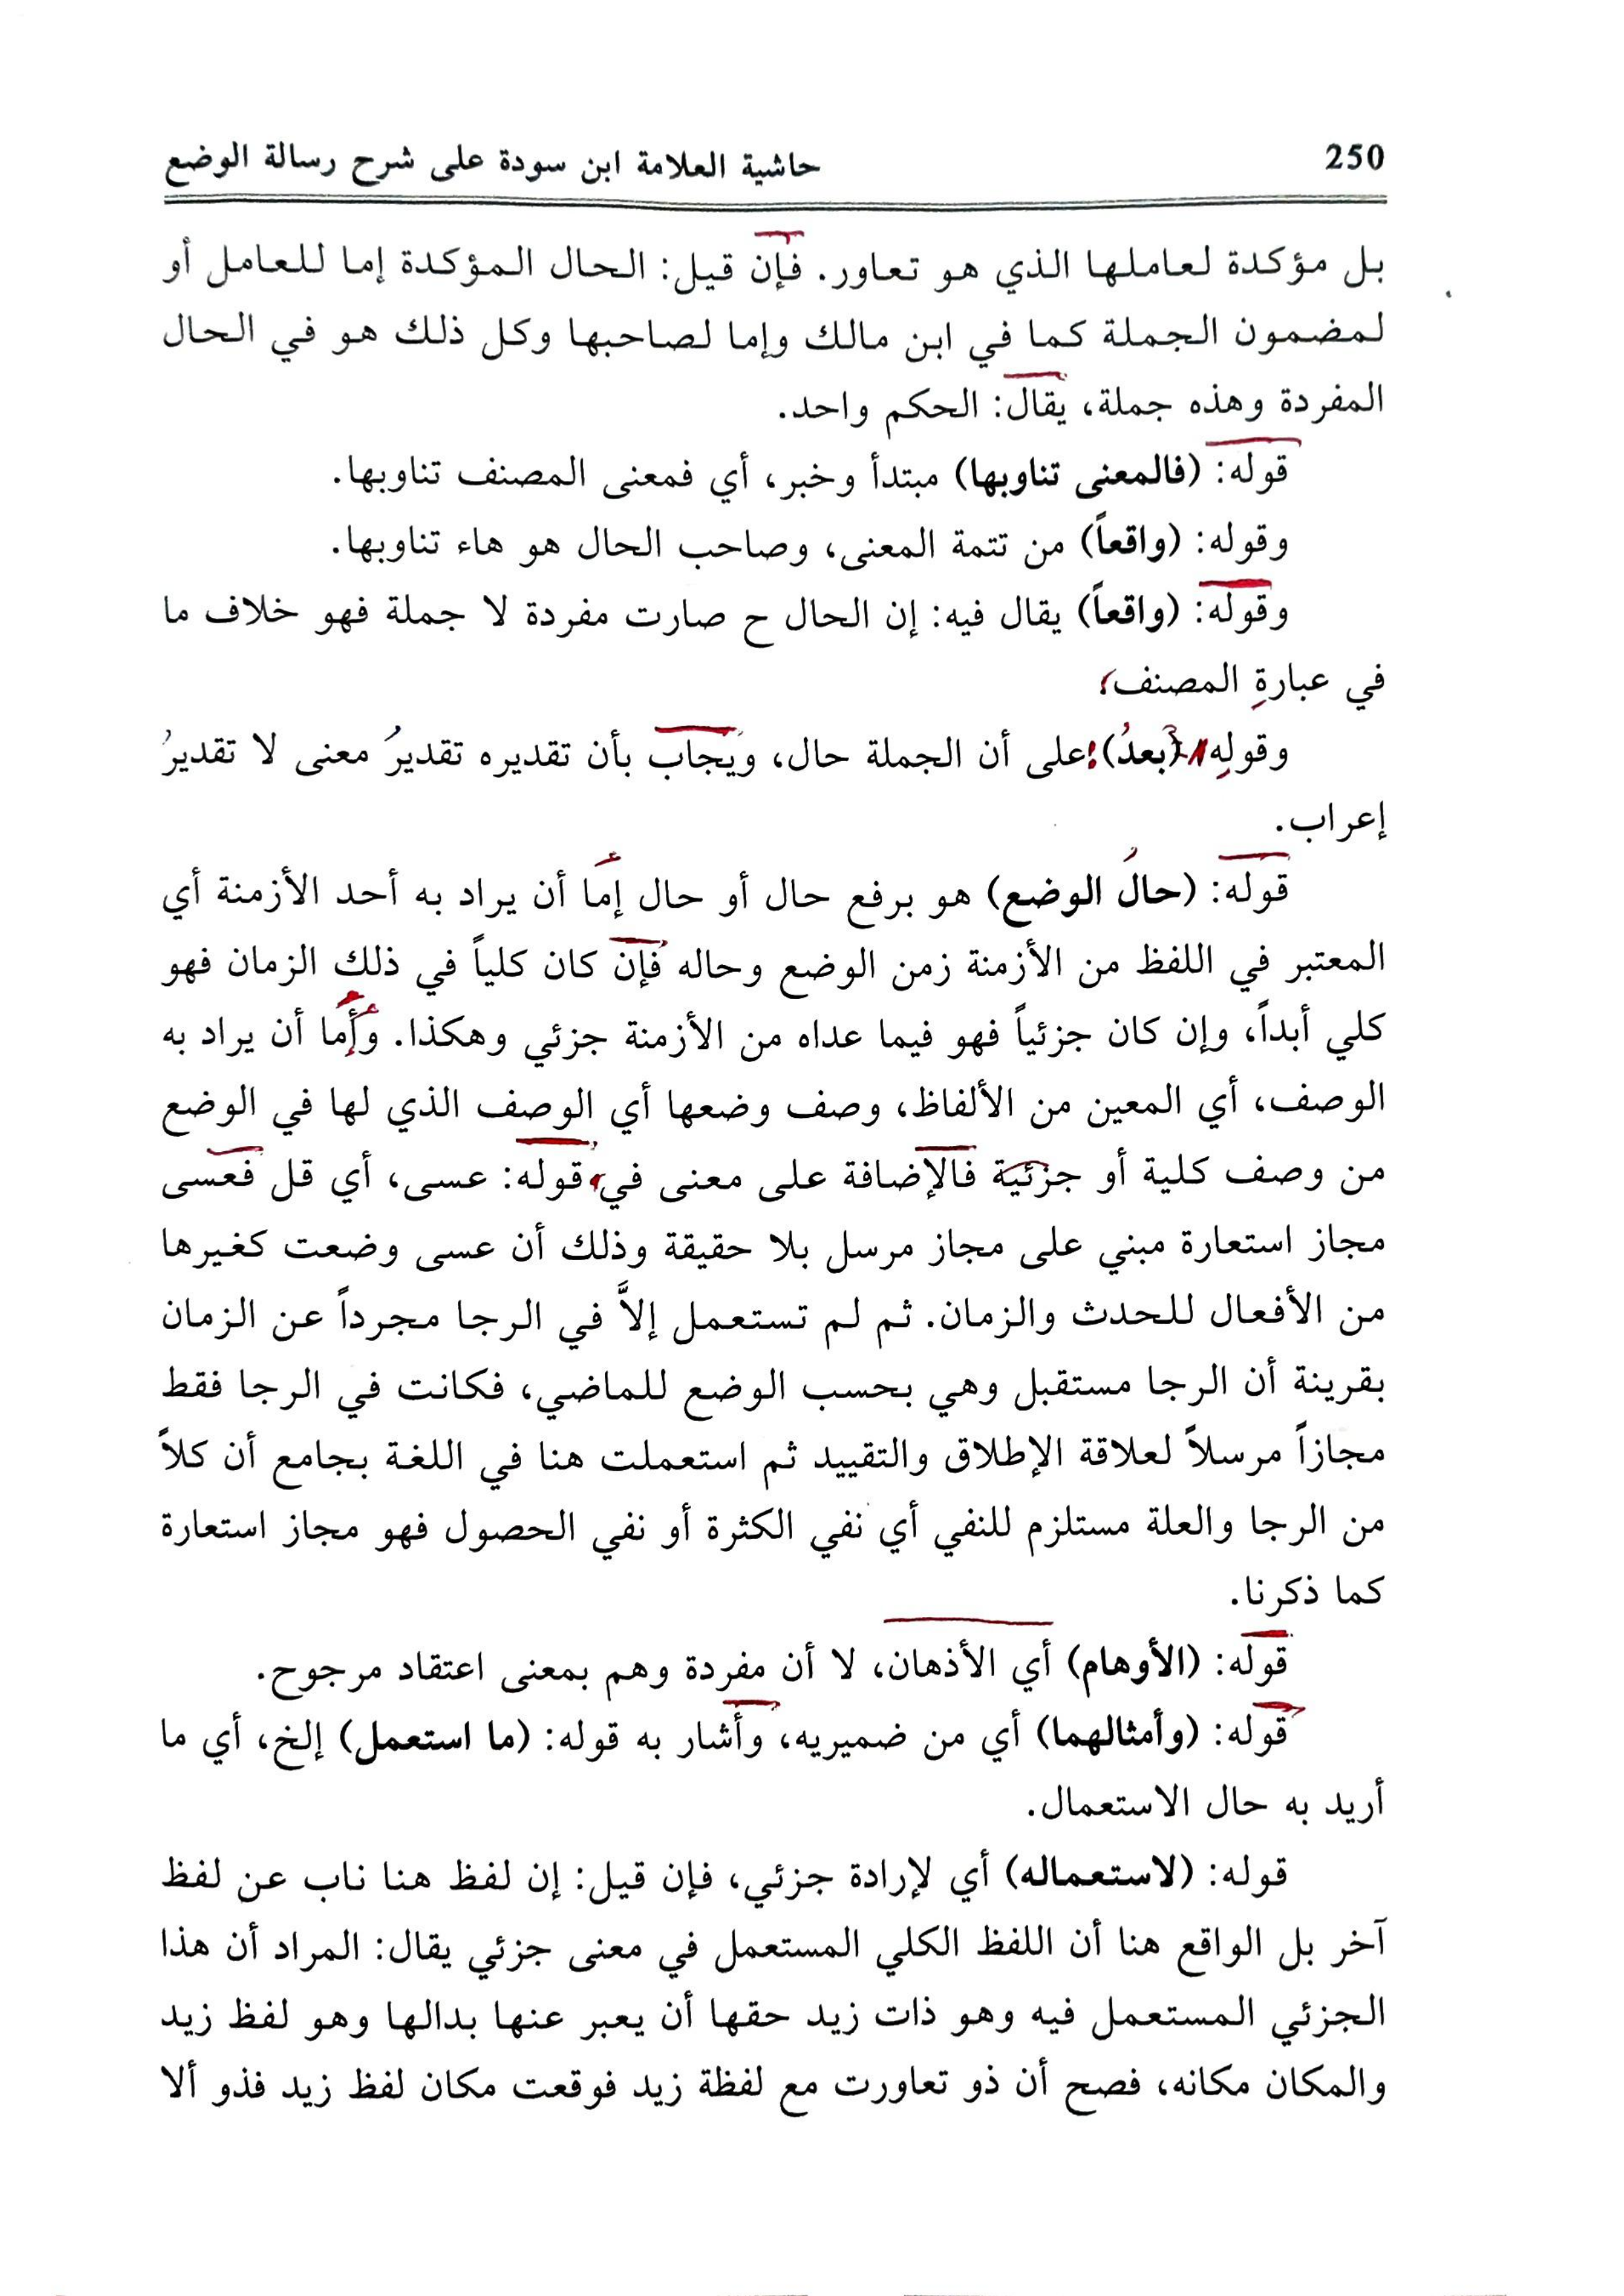 250 حاشية العلامة ابن سودة على شرح رسالة الوضع
بل مؤكدة لعاملها الذي هو تعاور. فإن قيل: الحال المؤكدة إما للعامل أو
لمضمون الجملة كما في ابن مالك وإما لصاحبها وكل ذلك هو في الحال
المفردة وهذه جملة، يقال: الحكم واحد.
قوله: (فالمعنى تناوبها) مبتدأ وخبر، أي فمعنى المصنف تناوبها.
وقوله: (واقعاً) من تتمة المعنى، وصاحب الحال هو هاء تناوبها.
وقوله: (واقعاً) يقال فيه: إن الحال ح صارت مفردة لا جملة فهو خلاف ما
في عبارةِ المصنف،
وقولِه (بعدُ) على أن الجملة حال، ويجاب بأن تقديره تقديرُ معنى لا تقديرُ
إعراب.
قوله: (حالُ الوضع) هو برفع حال أو حال إما أن يراد به أحد الأزمنة أي
المعتبر في اللفظ من الأزمنة زمن الوضع وحاله فإن كان كلياً في ذلك الزمان فهو
كلي أبداً، وإن كان جزئياً فهو فيما عداه من الأزمنة جزئي وهكذا. وأما أن يراد به
الوصف، أي المعين من الألفاظ، وصف وضعها أي الوصف الذي لها في الوضع
من وصف كلية أو جزئية فالإضافة على معنى في، قوله: عسى، أي قل فعسى
مجاز استعارة مبني على مجاز مرسل بلا حقيقة وذلك أن عسى وضعت كغيرها
من الأفعال للحدث والزمان. ثم لم تستعمل إلاَّ في الرجا مجرداً عن الزمان
بقرينة أن الرجا مستقبل وهي بحسب الوضع للماضي، فكانت في الرجا فقط
مجازاً مرسلاً لعلاقة الإطلاق والتقييد ثم استعملت هنا في اللغة بجامع أن كلاً
من الرجا والعلة مستلزم للنفي أي نفي الكثرة أو نفي الحصول فهو مجاز استعارة
كما ذكرنا.
قوله: (الأوهام) أي الأذهان، لا أن مفردة وهم بمعنى اعتقاد مرجوح.
قوله: (وأمثالهما) أي من ضميريه، وأشار به قوله: (ما استعمل) إلخ، أي ما
أريد به حال الاستعمال.
قوله: (لاستعماله) أي لإرادة جزئي، فإن قيل: إن لفظ هنا ناب عن لفظ
آخر بل الواقع هنا أن اللفظ الكلي المستعمل في معنى جزئي يقال: المراد أن هذا
الجزئي المستعمل فيه وهو ذات زيد حقها أن يعبر عنها بدالها وهو لفظ زيد
والمكان مكانه، فصح أن ذو تعاورت مع لفظة زيد فوقعت مكان لفظ زيد فذو ألا